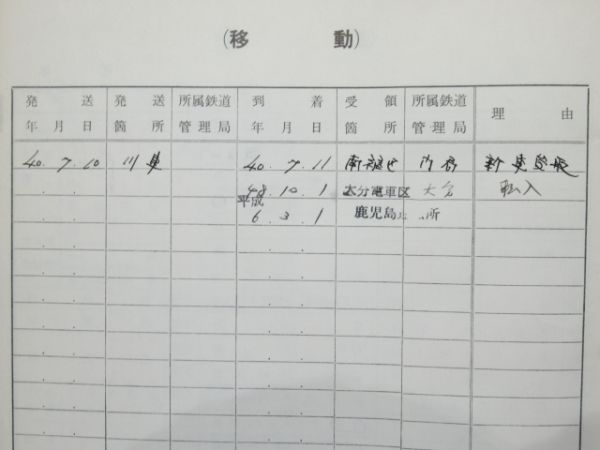 (移 動)
発送年月日 発送箇所 所属鉄道管理局 到着年月日 受領箇所 所属鉄道管理局 理由
40.7.10 川車 40.7.11 南福セ 門局 新車登帳
48.10.1 大分電車区 大分 転入
平成
6.3.1 鹿児島 所